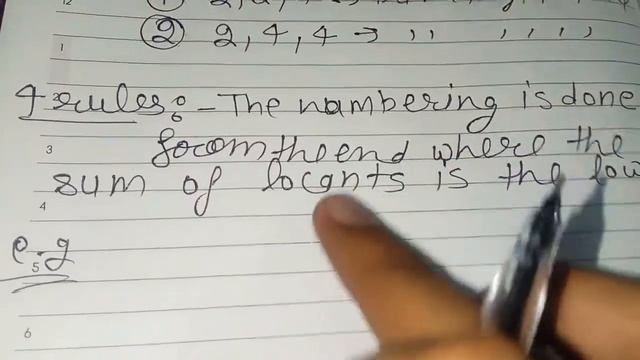 ② 2, 4, 4 → ,, ,, ,,
4 rules :- The nambering is done
from the end where the
sum of locants is the low
e.g
1
3
4
5
6